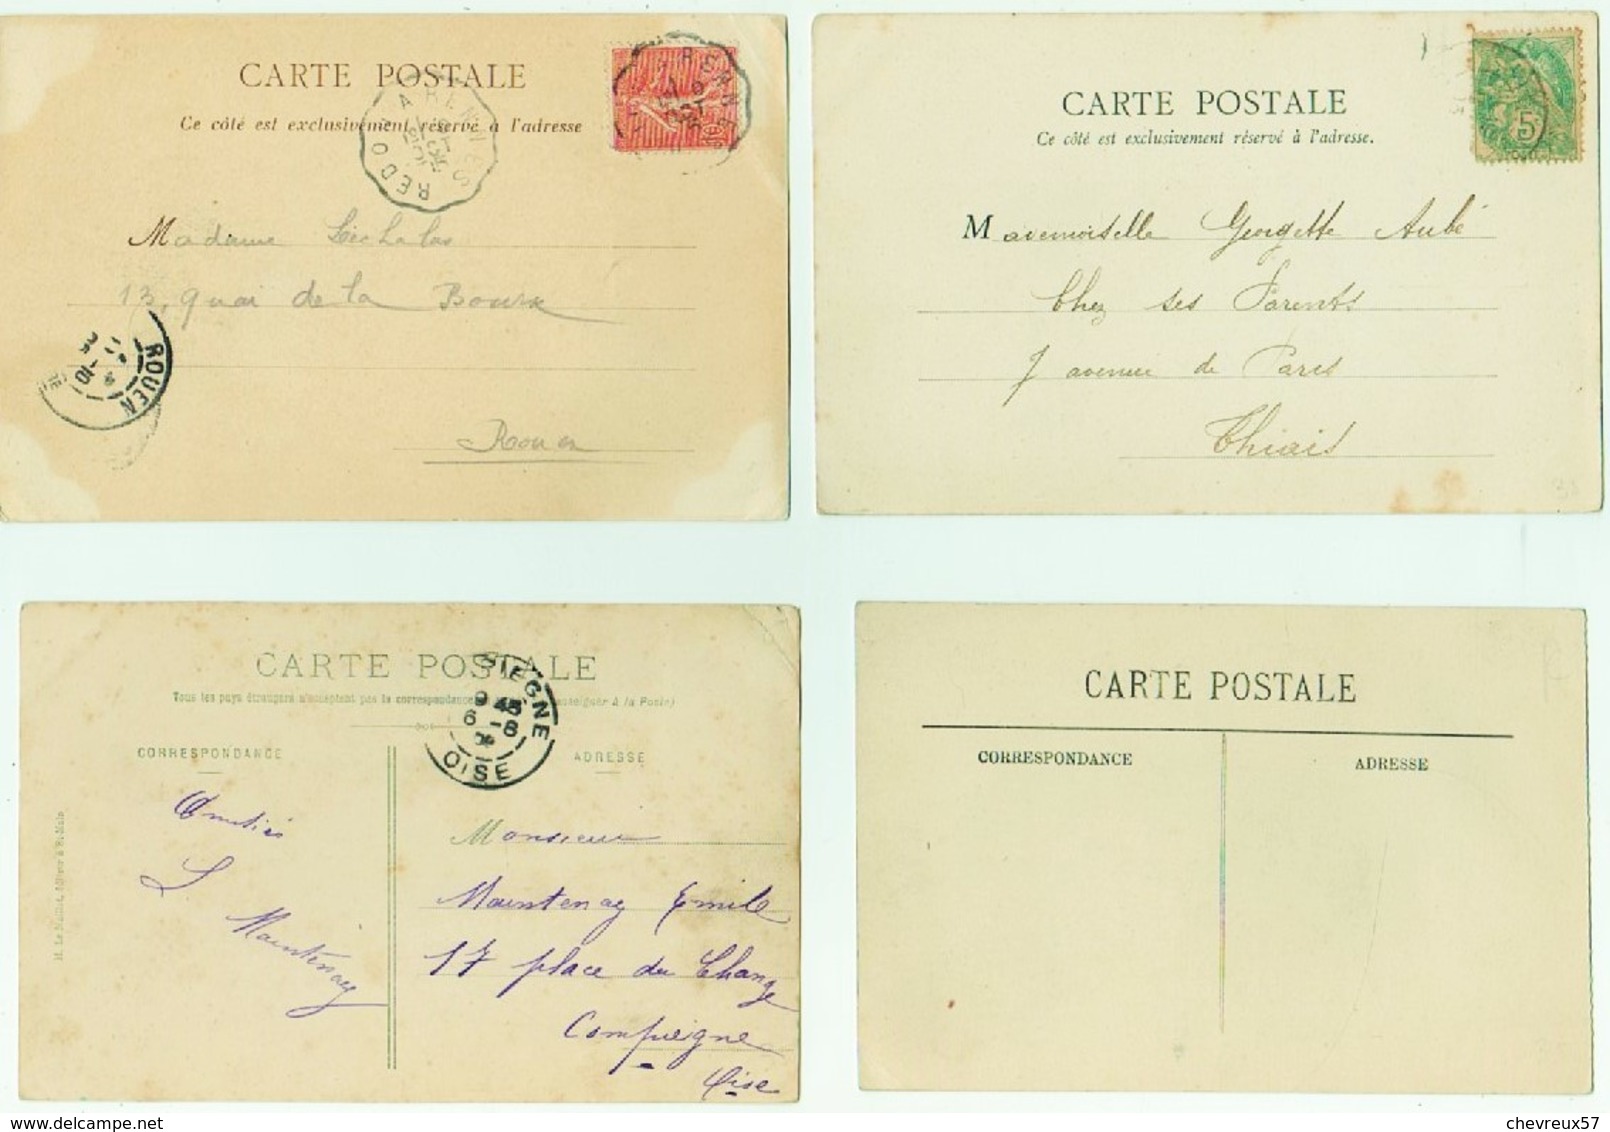 CARTE POSTALE
Ce côté est exclusivement réservé à l'adresse
REDON A RENNES
Madame Lechalas
13, quai de la Bourse
ROUEN
Rouen
CARTE POSTALE
Ce côté est exclusivement réservé à l'adresse.
5
Mademoiselle Georgette Aubé
Chez ses Parents
7 avenue de Paris
Thiais
CARTE POSTALE
Tous les pays étrangers n'acceptent pas la correspondance
enseigner à la Poste)
IEGNE
9 45
6 -8
OISE
CORRESPONDANCE
ADRESSE
Amitiés
L Maintenay
Monsieur
Maintenay Emile
17 place du Change
Compiegne
Oise
CARTE POSTALE
CORRESPONDANCE
ADRESSE
chevreux57